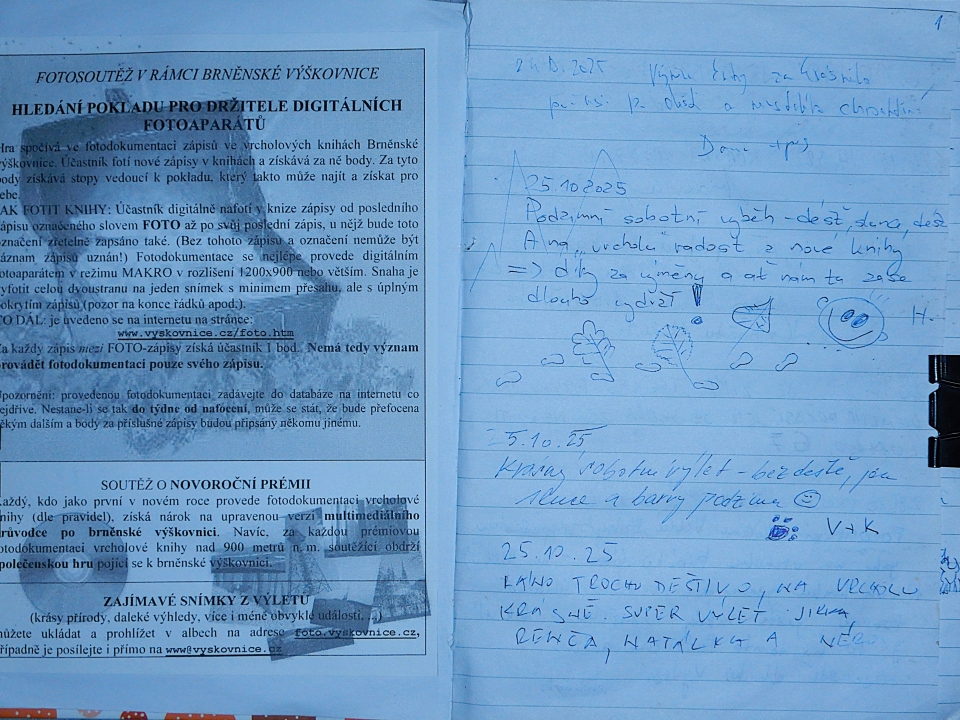 FOTOSOUTĚŽ V RÁMCI BRNĚNSKÉ VÝŠKOVNICE
HLEDÁNÍ POKLADU PRO DRŽITELE DIGITÁLNÍCH
FOTOAPARÁTŮ
Hra spočívá ve fotodokumentaci zápisů ve vrcholových knihách Brněnské
výškovnice. Účastník fotí nové zápisy v knihách a získává za ně body. Za tyto
body získává stopy vedoucí k pokladu, který takto může najít a získat pro
sebe.
JAK FOTIT KNIHY: Účastník digitálně nafotí v knize zápisy od posledního
zápisu označeného slovem FOTO až po svůj poslední zápis, u nějž bude toto
označení zřetelně zapsáno také. (Bez tohoto zápisu a označení nemůže být
záznam zápisů uznán!) Fotodokumentace se nejlépe provede digitálním
fotoaparátem v režimu MAKRO v rozlišení 1200x900 nebo větším. Snaha je
vyfotit celou dvoustranu na jeden snímek s minimem přesahu, ale s úplným
pokrytím zápisů (pozor na konce řádků apod.).
CO DÁL: je uvedeno se na internetu na stránce:
www.vyskovnice.cz/foto.htm
Za každý zápis mezi FOTO-zápisy získá účastník 1 bod. Nemá tedy význam
provádět fotodokumentaci pouze svého zápisu.
Upozornění: provedenou fotodokumentaci zadávejte do databáze na internetu co
nejdříve. Nestane-li se tak do týdne od nafocení, může se stát, že bude přefocena
někým dalším a body za příslušné zápisy budou připsány někomu jinému.
SOUTĚŽ O NOVOROČNÍ PRÉMII
Každý, kdo jako první v novém roce provede fotodokumentaci vrcholové
knihy (dle pravidel), získá nárok na upravenou verzi multimediálního
průvodce po brněnské výškovnici. Navíc, za každou prémiovou
fotodokumentaci vrcholové knihy nad 900 metrů n. m. soutěžící obdrží
společenskou hru pojící se k brněnské výškovnici.
ZAJÍMAVÉ SNÍMKY Z VÝLETŮ
(krásy přírody, daleké výhledy, více i méně obvyklé události, ...)
můžete ukládat a prohlížet v albech na adrese foto.vyskovnice.cz,
případně je posílejte i přímo na www@vyskovnice.cz
1
2025 Výměna knihy za
a
25.10.2025
Podzimní sobotní výběh - déšť, slunce, déšť
A na „vrcholu" radost z nové knihy
=> díky za výměny a ať nám tu zase
dlouho vydrží!
H.
25.10.25
Krásný sobotní výlet - bez deště, jen
slunce a barvy podzimu ☺
V+K
25.10.25
RÁNO TROCHU DEŠTIVO, NA VRCHOLU
KRÁSNĚ. SUPER VÝLET. JIRKA,
RENČA, NATÁLKA A